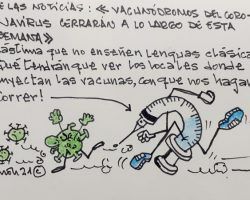 E LAS NOTICIAS: « VACUNÓDROMOS DEL CORO
NAVIRUS CERRARÁN A LO LARGO DE ESTA
SEMANA»
ÁSTIMA QUE NO ENSEÑEN LENGUAS CLÁSICA
QUÉ TENDRÁN QUE VER LOS LOCALES DONDE
NYECTAN LAS VACUNAS, CON QUE NOS HAGAN
CORRER!
21©